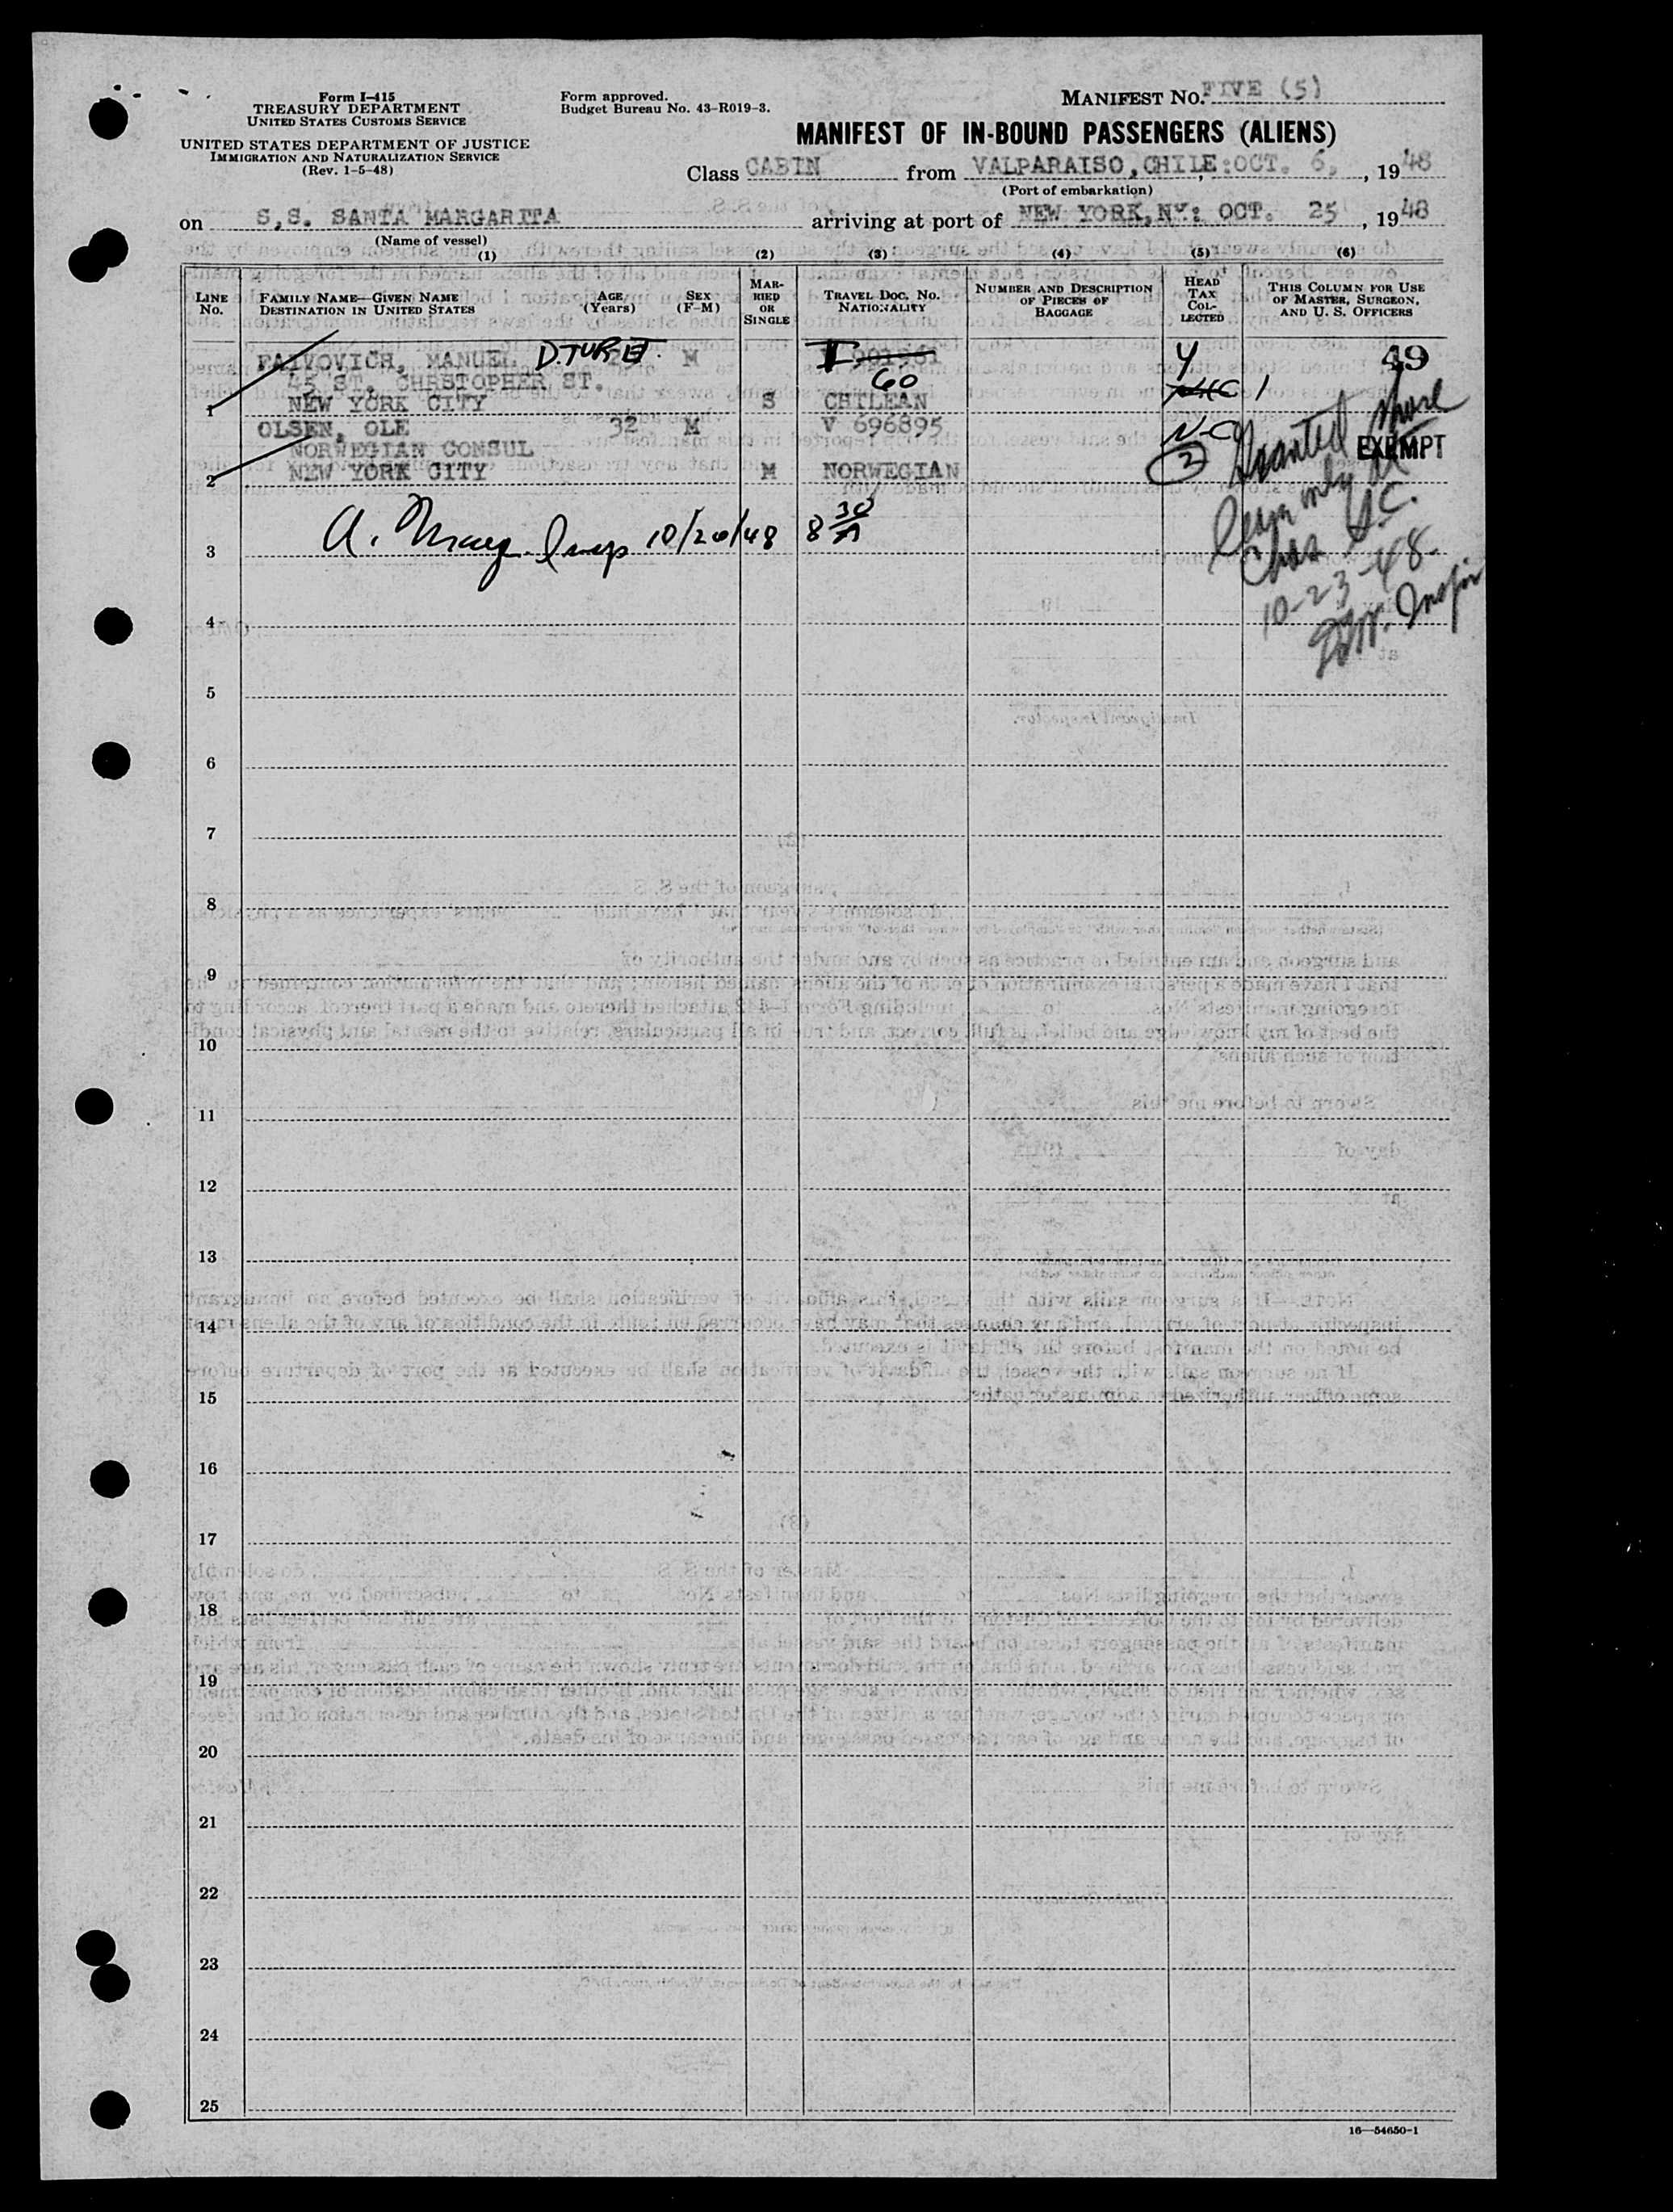 Form I-415
TREASURY DEPARTMENT
UNITED STATES CUSTOMS SERVICE
UNITED STATES DEPARTMENT OF JUSTICE
IMMIGRATION AND NATURALIZATION SERVICE
(Rev. 1-5-48)
Form approved.
Budget Bureau No. 43-R019-3.
MANIFEST NO. FIVE (5)
MANIFEST OF IN-BOUND PASSENGERS (ALIENS)
Class CABIN from VALPARAISO, CHILE: OCT. 6, 1948
(Port of embarkation)
on S.S. SANTA MARGARITA arriving at port of NEW YORK, NY: OCT. 25, 1948
(Name of vessel)
(1) (2) (3) (4) (5) (6)
LINE No. FAMILY NAME—GIVEN NAME DESTINATION IN UNITED STATES AGE (Years) SEX (F-M) MARRIED OR SINGLE TRAVEL DOC. NO. NATIONALITY NUMBER AND DESCRIPTION OF PIECES OF BAGGAGE HEAD TAX COLLECTED THIS COLUMN FOR USE OF MASTER, SURGEON, AND U. S. OFFICERS
FAIVOVICH, MANUEL M 901961 49
60
45 ST. CHRSTOPHER ST.
1 NEW YORK CITY S CHILEAN 1
OLSEN, OLE 32 M V 696895 N-C
NORWEGIAN CONSUL EXEMPT
2 NEW YORK CITY M NORWEGIAN 2
Granted shore
leave only at
Chas S.C.
10-23-48.
Inspr
3 A. Insp 10/26/48 8 30/A
4
5
6
7
8
9
10
11
12
13
14
15
16
17
18
19
20
21
22
23
24
25
16—54650-1